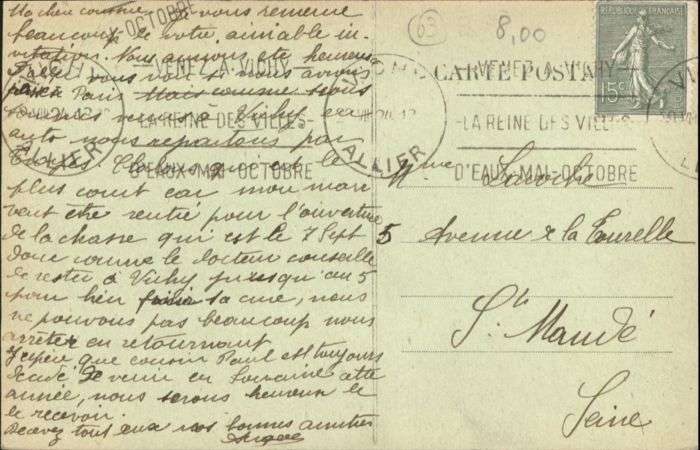 Ma chère cousine, je vous remercie
beaucoup de votre aimable in-
vitation. Nous aurions été heureux
d'aller vous voir si nous avions
passé Paris mais comme nous
sommes venus à Vichy en
auto nous repartons par
qui est le
plus court car mon mari
veut être rentré pour l'ouverture
de la chasse qui est le 7 Sept
donc comme le docteur conseille
de rester à Vichy jusqu'au 5
pour bien finir sa cure, nous
ne pouvons pas beaucoup nous
arrêter en retournant
J'espère que cousin Paul est toujours
décidé de venir en Lorraine cette
année, nous serons heureux de
le recevoir.
Recevez tous deux nos bonnes amitiés
63
8,00
OCTOBRE
VENEZ A VICHY
LA REINE DES VILLES
D'EAUX-MAI-OCTOBRE
ALLIER
VICHY
ALLIER
CARTE POSTALE
VENEZ A VICHY
-LA REINE DES VILLES-
D'EAUX-MAI-OCTOBRE
REPUBLIQUE FRANÇAISE
15c
Mme Laroche
5 Avenue de la Tourelle
St Mandé
Seine